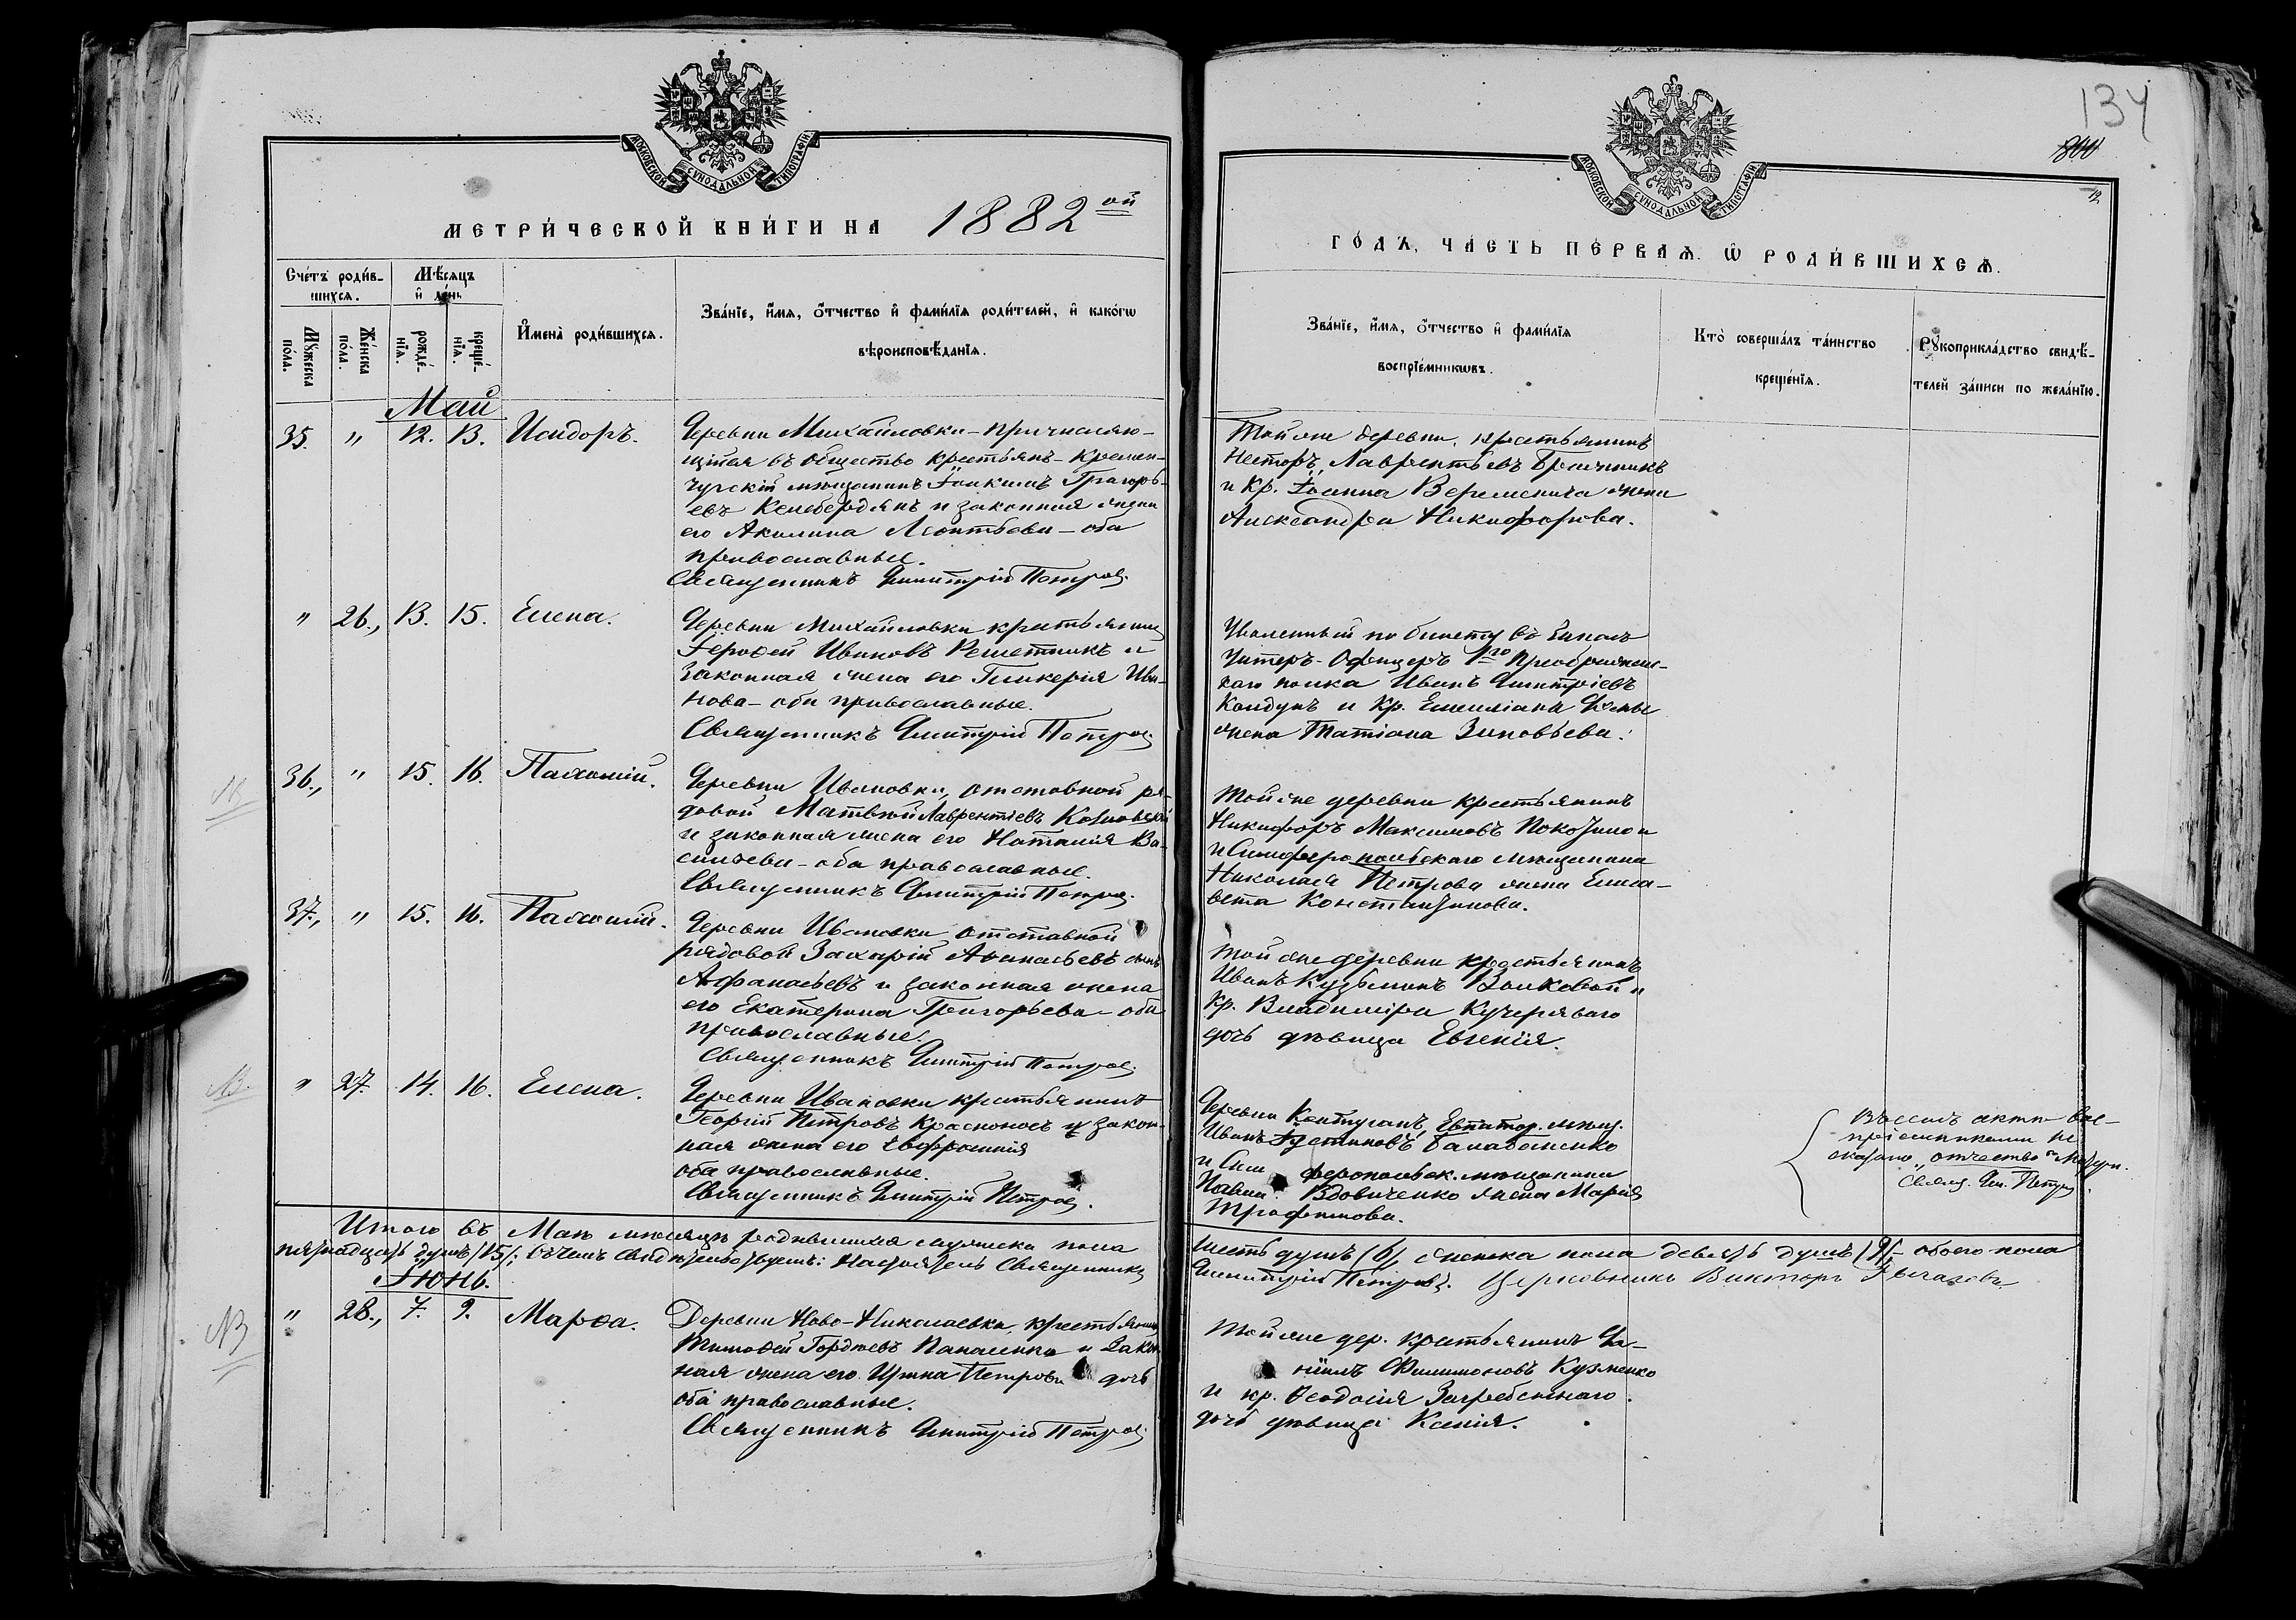 МОСКОВСКОЙ СѴНОДАЛЬНОЙ ТИПОГРАФІИ
МЕТРИ́ЧЕСКОЙ КНИ́ГИ НА 1882 ой
Сче́тъ роди́в-
шихся.
Мѣ́сяцъ
и де́нь
Мꙋ́жеска
по́ла.
Же́нска
по́ла.
рожде́-
нїя.
креще́-
нїя.
И҆мена̀ роди́вшихся.
Зва́нїе, и҆́мя, ѻ҆́тчество и҆ фами́лїя роди́телей, и҆ како́гѡ
вѣроисповѣ́данїя.
Май
35. " 12. 13. Исидоръ.
Деревни Михайловки - причисляю-
щійся въ общество крестьянъ - Кремен-
чугскій мѣщанинъ Іоакимъ Григорь-
евъ Келебердянъ и законная жена
его Акилина Леонтьева - оба
православные.
Священникъ Димитрій Петровъ.
" 26., 13. 15. Елена.
Деревни Михайловки крестьянинъ
Іерофей Ивановъ Решетникъ и
законная жена его Гликерія Ива-
нова - оба православные.
Священникъ Димитрій Петровъ
36., " 15. 16. Пахомій.
Деревни Ивановки, отставной ря-
довой Матвѣй Лаврентіевъ Козловскій
и законная жена его Наталія Ва-
сильева - оба православные.
Священникъ Димитрій Петровъ.
37., " 15. 16. Пахомій.
Деревни Ивановки отставной
рядовой Захарій Афанасьевъ сынъ
Афанасьевъ и законная жена
его Екатерина Григорьева - оба
православные.
Священникъ Димитрій Петровъ.
" 27. 14. 16. Елена.
Деревни Ивановки крестьянинъ
Георгій Петровъ Красноносъ и закон-
ная жена его Евфросинія
оба православные.
Священникъ Димитрій Петровъ.
Итого въ Маѣ мѣсяцѣ родившихся мужеска пола
пятнадцать душъ (15); въ чемъ свидѣтельствуетъ: Настоятель Священникъ
Іюнь.
" 28., 7. 9. Марѳа.
Деревни Ново-Николаевки, крестьянинъ
Тимоѳей Гордѣевъ Панасенко и закон-
ная жена его Ирина Петрова дочь
оба православные.
Священникъ Димитрій Петровъ
134
МОСКОВСКОЙ СѴНОДАЛЬНОЙ ТИПОГРАФІИ
ГО́ДЪ, ЧА́СТЬ ПЕ́РВАЯ. Ѡ҆ РОДИ́ВШИХСЯ.
Зва́нїе, и҆́мя, ѻ҆́тчество и҆ фами́лїя
воспрїе́мникѡвъ.
Кто̀ соверша́лъ та́инство
креще́нїя.
Рꙋкоприкла́дство свидѣ́-
телей за́писи по жела́нїю.
Той же деревни, крестьянинъ
Несторъ Лаврентьевъ
и Кр. Іоанна Веремеича жена
Александра Никифорова.
Уволенный по билету
Унтеръ-Офицеръ 1го Преображен-
каго полка Иванъ Димитріевъ
Колдунъ и Кр. Емиліана
жена Татіана Зиновьева.
Той же деревни крестьянинъ
Никифоръ Максимовъ и
и Симферопольскаго мѣщанина
Николая Петрова жена Елиса-
вета Константинова.
Той же деревни крестьянинъ
Иванъ Кузьминъ Волковой и
Кр. Владиміра Кучеряваго
дочь дѣвица Евгенія.
Деревни Контуганъ, Евпатор. мѣщ.
Иванъ Устиновъ Балабаненко
и Сим феропольск. мѣщанина
Павла Вдовиченко жена Марія
Трофимова.
Въ семъ актѣ вос-
пріемниками не
сказано отчество
Свящ. Дм. Петровъ
шесть душъ (6), женска пола девять душъ (9) - обоего пола
Димитрій Петровъ. Церковникъ Викторъ
Той же дер. крестьянинъ Да-
ніилъ Филимоновъ Кузменко
и кр. Ѳеодосія Загребельнаго
дочь дѣвица Ксенія.